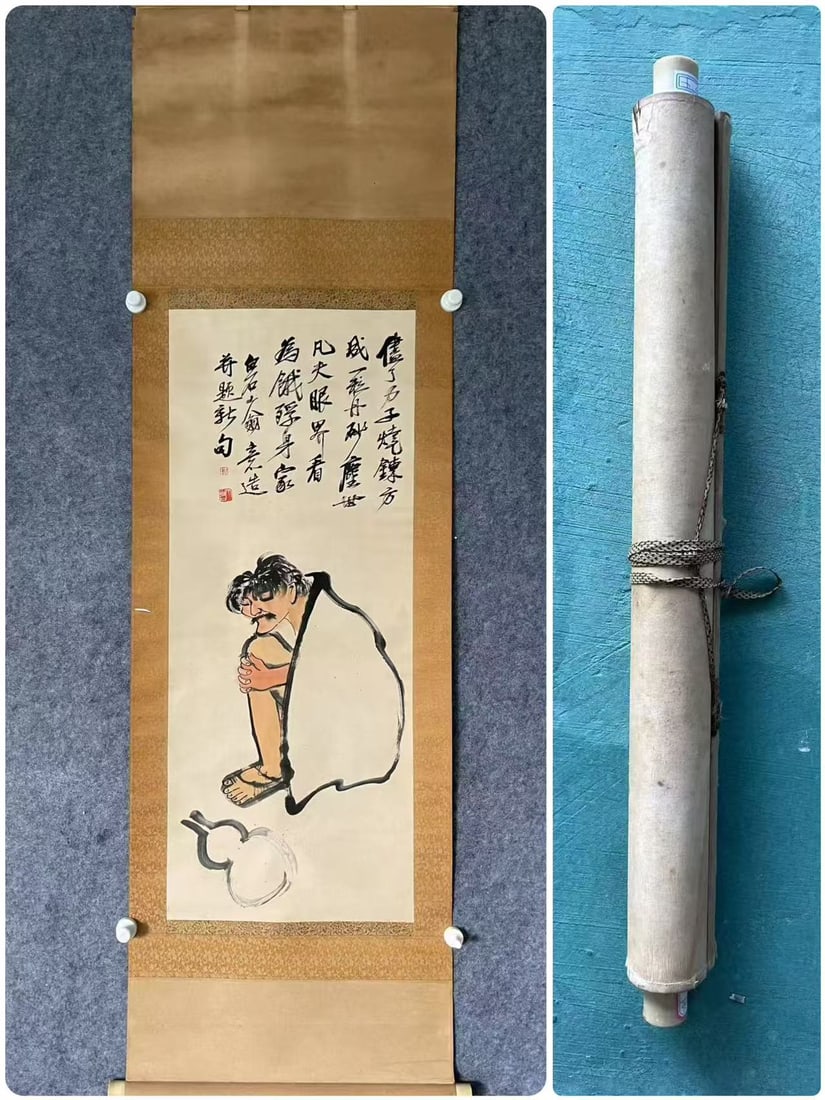 儘了力子燒鍊方
成一粒丹砂塵世
凡夫眼界看
為餓殍身家
白石山翁意造
并題新句